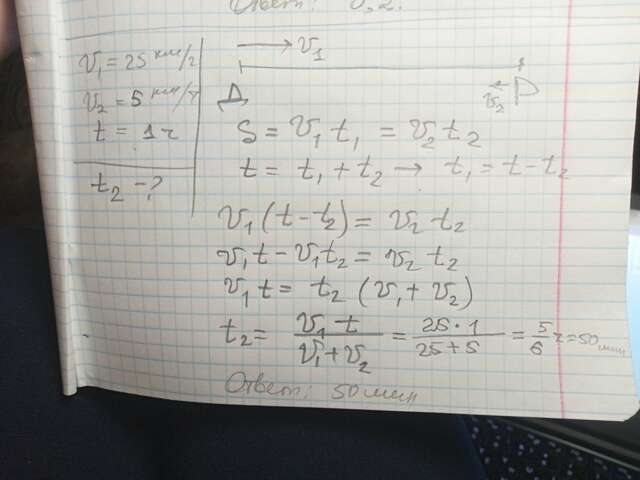 Ответ: 0,2.
v₁ = 25 км/ч
v₂ = 5 км/ч
t = 1 ч
t₂ - ?
v₁
Д
v₂ Р
S = v₁ t₁ = v₂ t₂
t = t₁ + t₂ → t₁ = t - t₂
v₁ (t - t₂) = v₂ t₂
v₁t - v₁t₂ = v₂ t₂
v₁ t = t₂ (v₁ + v₂)
t₂ = v₁ t / (v₁ + v₂) = 25·1 / (25+5) = 5/6 ч = 50 мин
Ответ: 50 мин